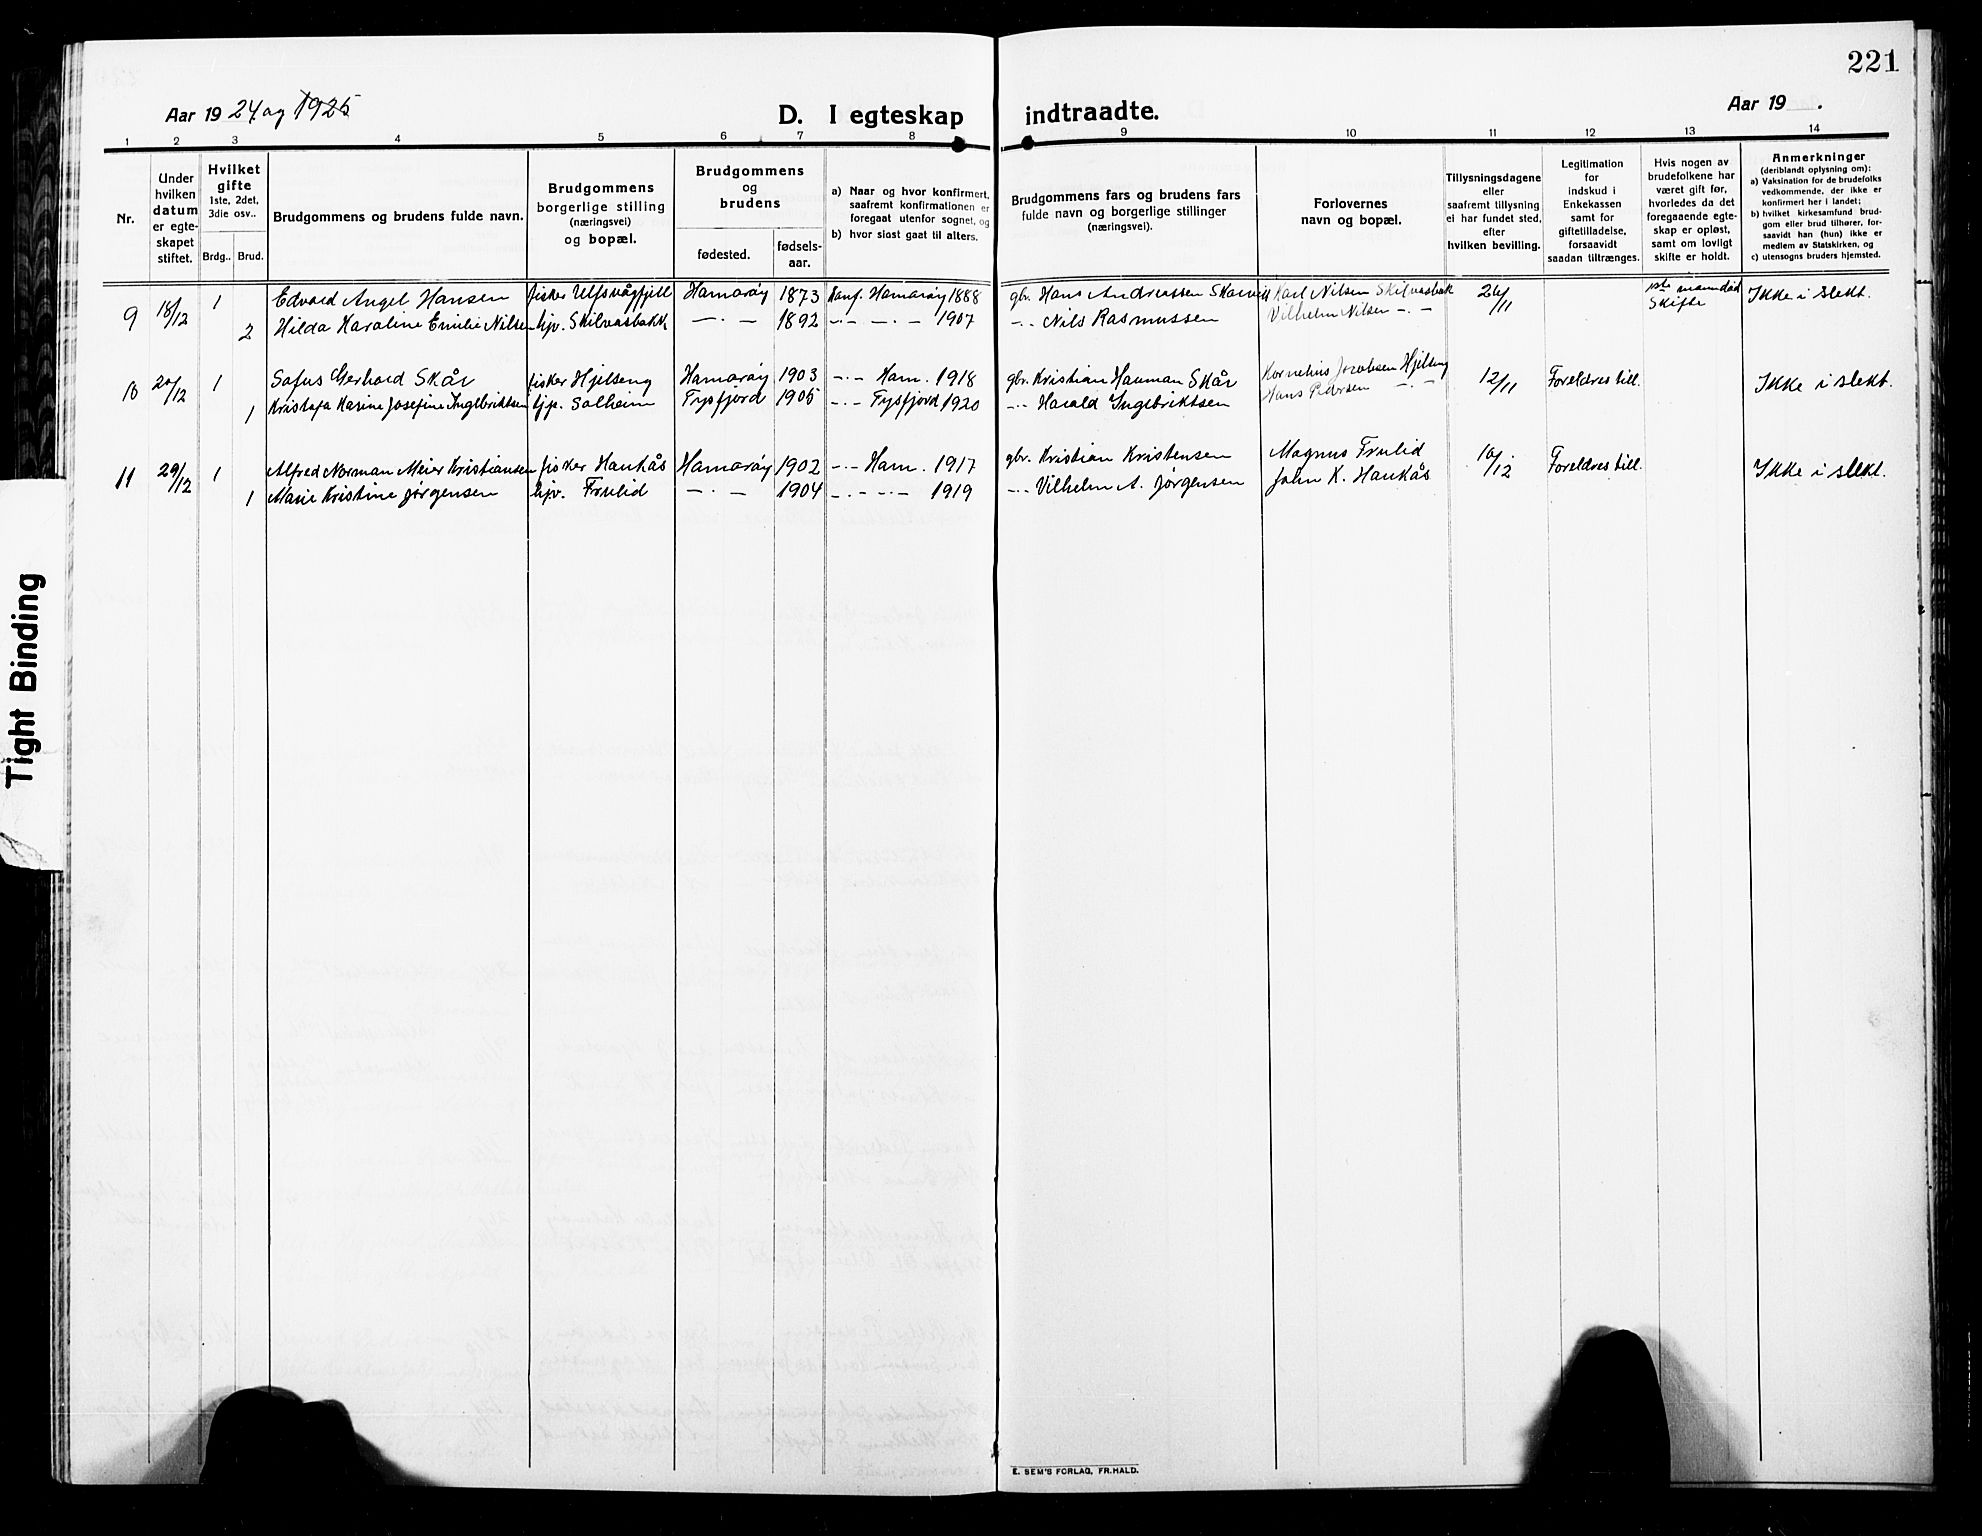 221
Aar 1924 og 1925
D. I egteskap indtraadte.
Aar 19 .
1 2 3 4 5 6 7 8 9 10 11 12 13 14
Nr.
Under hvilken datum er egteskapet stiftet.
Hvilket gifte 1ste, 2det, 3die osv..
Brdg.. Brud.
Brudgommens og brudens fulde navn.
Brudgommens borgerlige stilling (næringsvei) og bopæl.
Brudgommens og brudens
fødested.
fødselsaar.
a) Naar og hvor konfirmert, saafremt konfirmationen er foregaat utenfor sognet, og
b) hvor sidst gaat til alters.
Brudgommens fars og brudens fars fulde navn og borgerlige stillinger (næringsvei).
Forlovernes navn og bopæl.
Tillysningsdagene eller saafremt tillysning ei har fundet sted, efter hvilken bevilling.
Legitimation for indskud i Enkekassen samt for giftetilladelse, forsaavidt saadan tiltrænges.
Hvis nogen av brudefolkene har været gift før, hvorledes da det foregaaende egteskap er opløst, samt om lovligt skifte er holdt.
Anmerkninger (deriblandt oplysning om):
a) Vaksination for de brudefolks vedkommende, der ikke er konfirmert her i landet;
b) hvilket kirkesamfund brudgom eller brud tilhører, forsaavidt han (hun) ikke er medlem av Statskirken, og
c) utensogns bruders hjemsted.
9 18/12 1 Edvard Angel Hansen fisker Ulfsvågfjell Hamarøy 1873 Konf. Hamarøy 1888 gbr. Hans Andreassen Karl Nilsen Skilvasbak 26/11 1ste mann død Skifte Ikke i slekt.
2 Hilda Karoline Emilie Nilsen hjv. Skilvasbakk —.— 1892 —.— —.— 1907 —.— Nils Rasmussen Vilhelm Nilsen —.—
10 20/12 1 Sofus Gerhard Skår fisker Hjelseng Hamarøy 1903 —.— Ham. 1918 gbr. Kristian Hauman Skår Kornelius Jacobsen Hjelseng 12/11 Foreldres till. Ikke i slekt.
1 Kristofa Karine Josefine Ingebriktsen hjp. Solheim Tysfjord 1905 —.— Tysfjord 1920 —.— Harald Ingebriktsen Hans Pedersen —.—
11 29/12 1 Alfred Norman Meier Kristiansen fisker Haukås Hamarøy 1902 —.— Ham. 1917 gbr. Kristian Kristensen Magnus Frulid 10/12 Foreldres till. Ikke i slekt.
1 Marie Kristine Jørgensen hjv. Frulid —.— 1904 —.— —.— 1919 —.— Vilhelm A. Jørgensen John K. Haukås
Tight Binding
E. SEM'S FORLAG, FR.HALD.